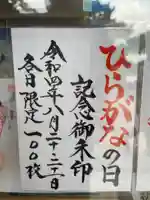 ひらがなの日
記念御朱印
令和四年八月
各日限定一〇〇枚